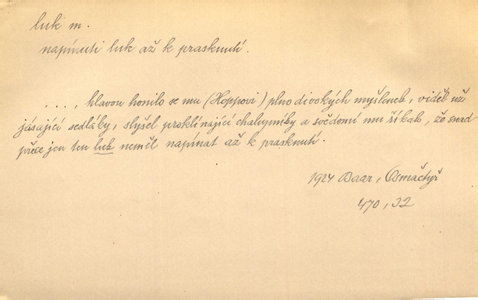 luk m.
napínati luk až k prasknutí.
..., hlavou honilo se mu (Hoppovi) plno divokých myšlenek, viděl už
jásající sedláky, slyšel proklínající chalupníky a svědomí mu říkalo, že snad
přece jen ten luk neměl napínat až k prasknutí.
1924 Baar, Lmač
470, 32